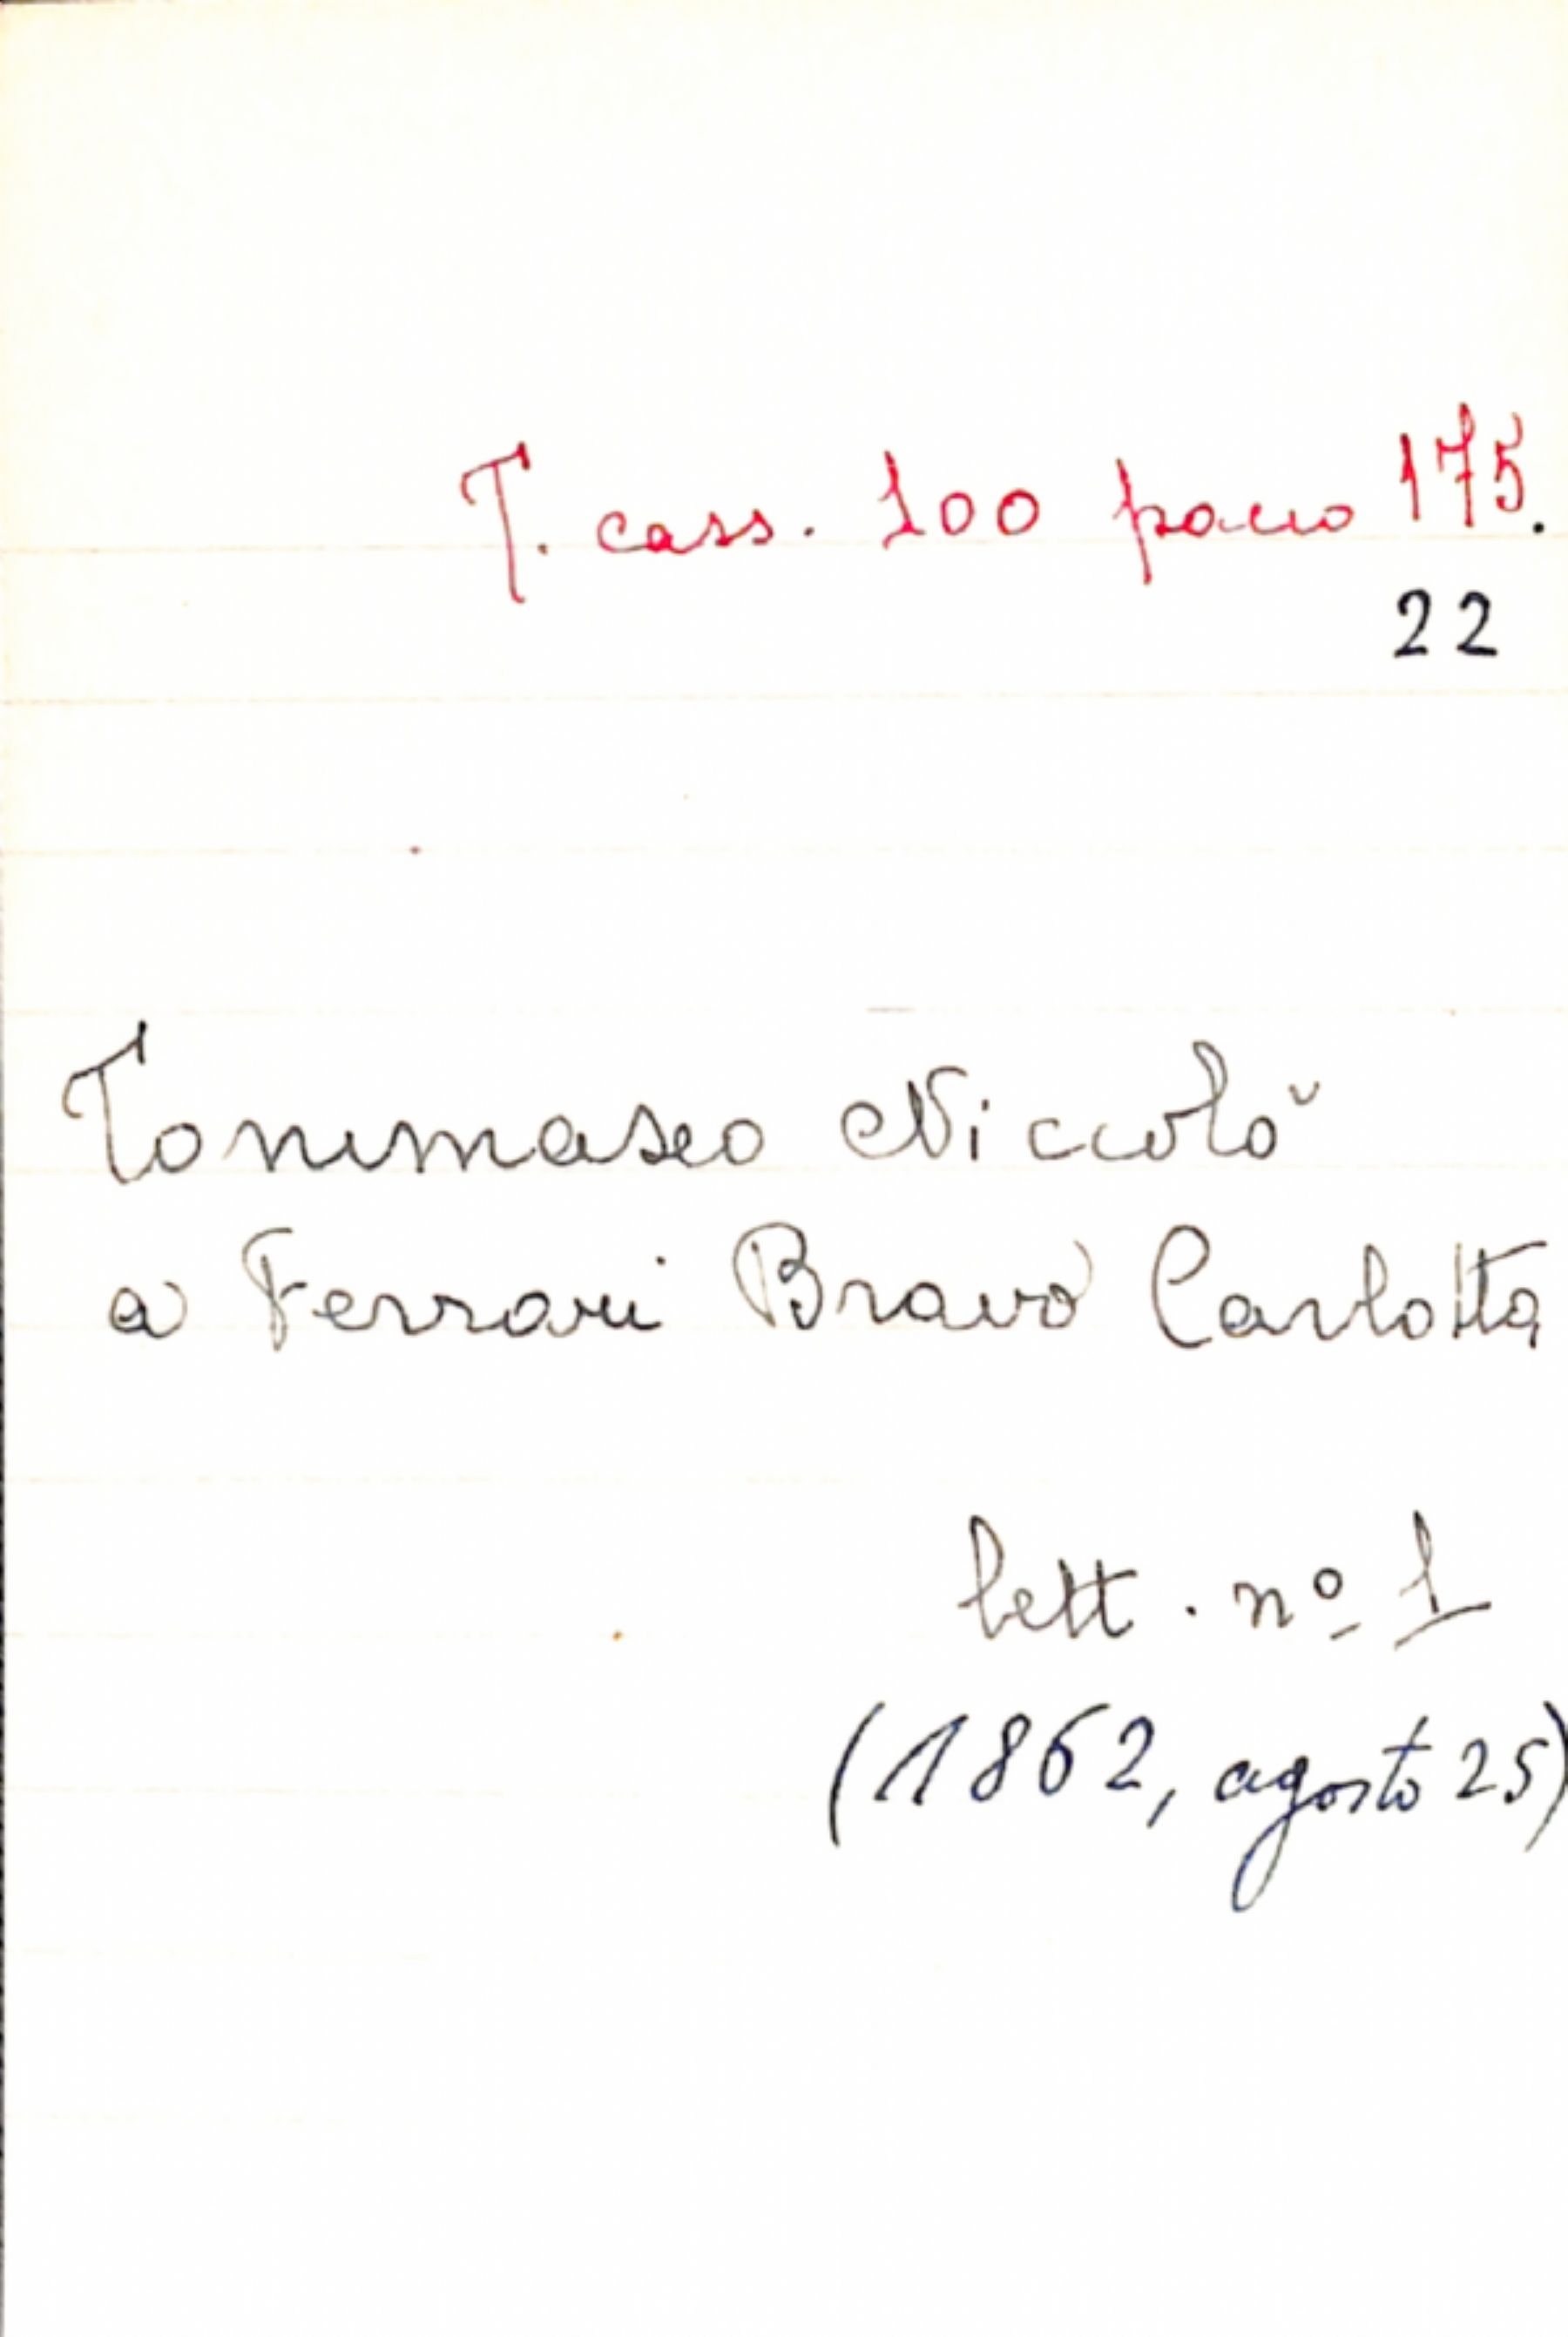 T. cass. 100 pacco 175.
22
Tommaseo Niccolò
a Ferrari Bravo Carlotta
lett. nº 1
(1862, agosto 25)